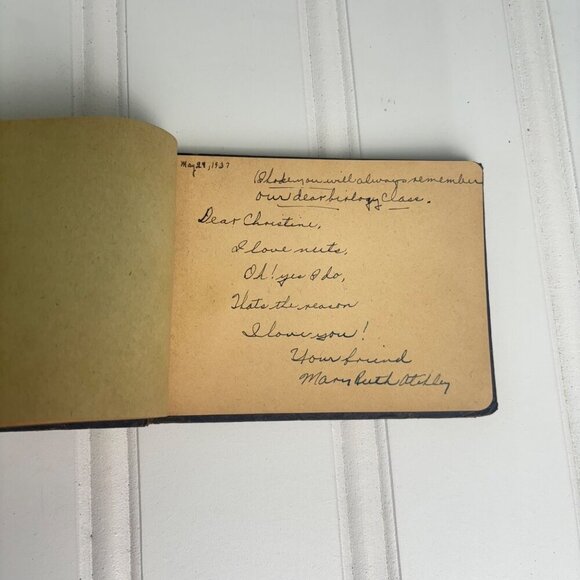 May 29, 1937
I hope you will always remember
our dear biology class.
Dear Christine,
I love nuts,
Oh! yes I do,
Thats the reason
I love you!
Your friend
Mary Ruth Atchley